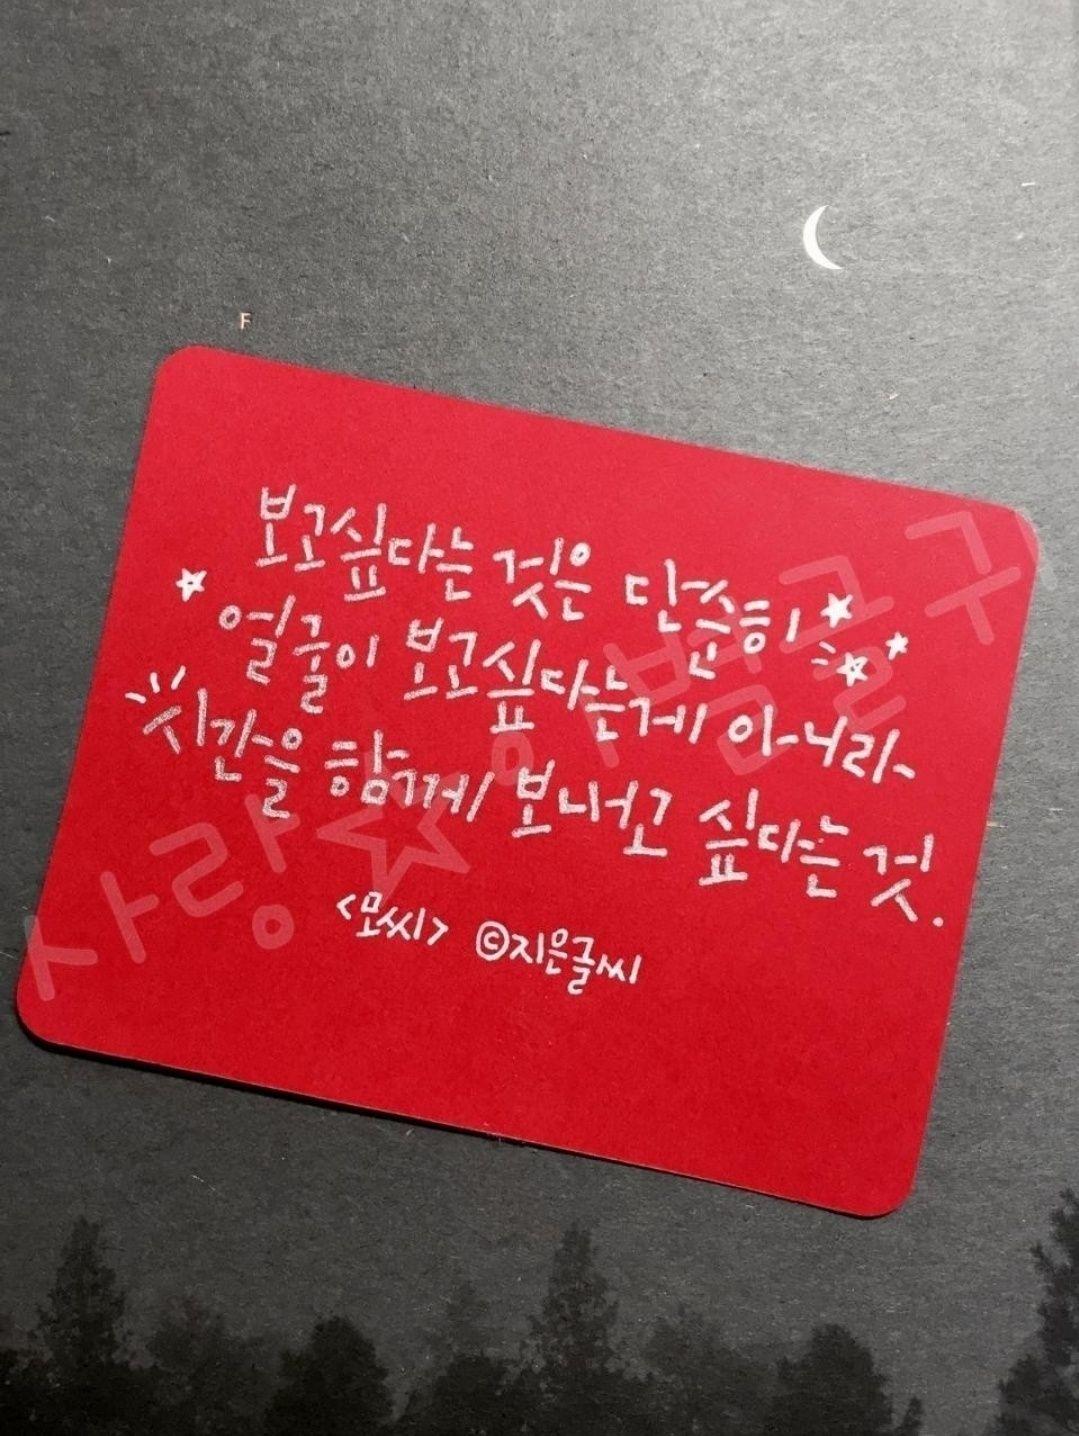 F
보고싶다는 것은 단순히
얼굴이 보고싶다는게 아니라
시간을 함께 보내고 싶다는 것.
<모씨> ©지은글씨
사랑☆이별글귀